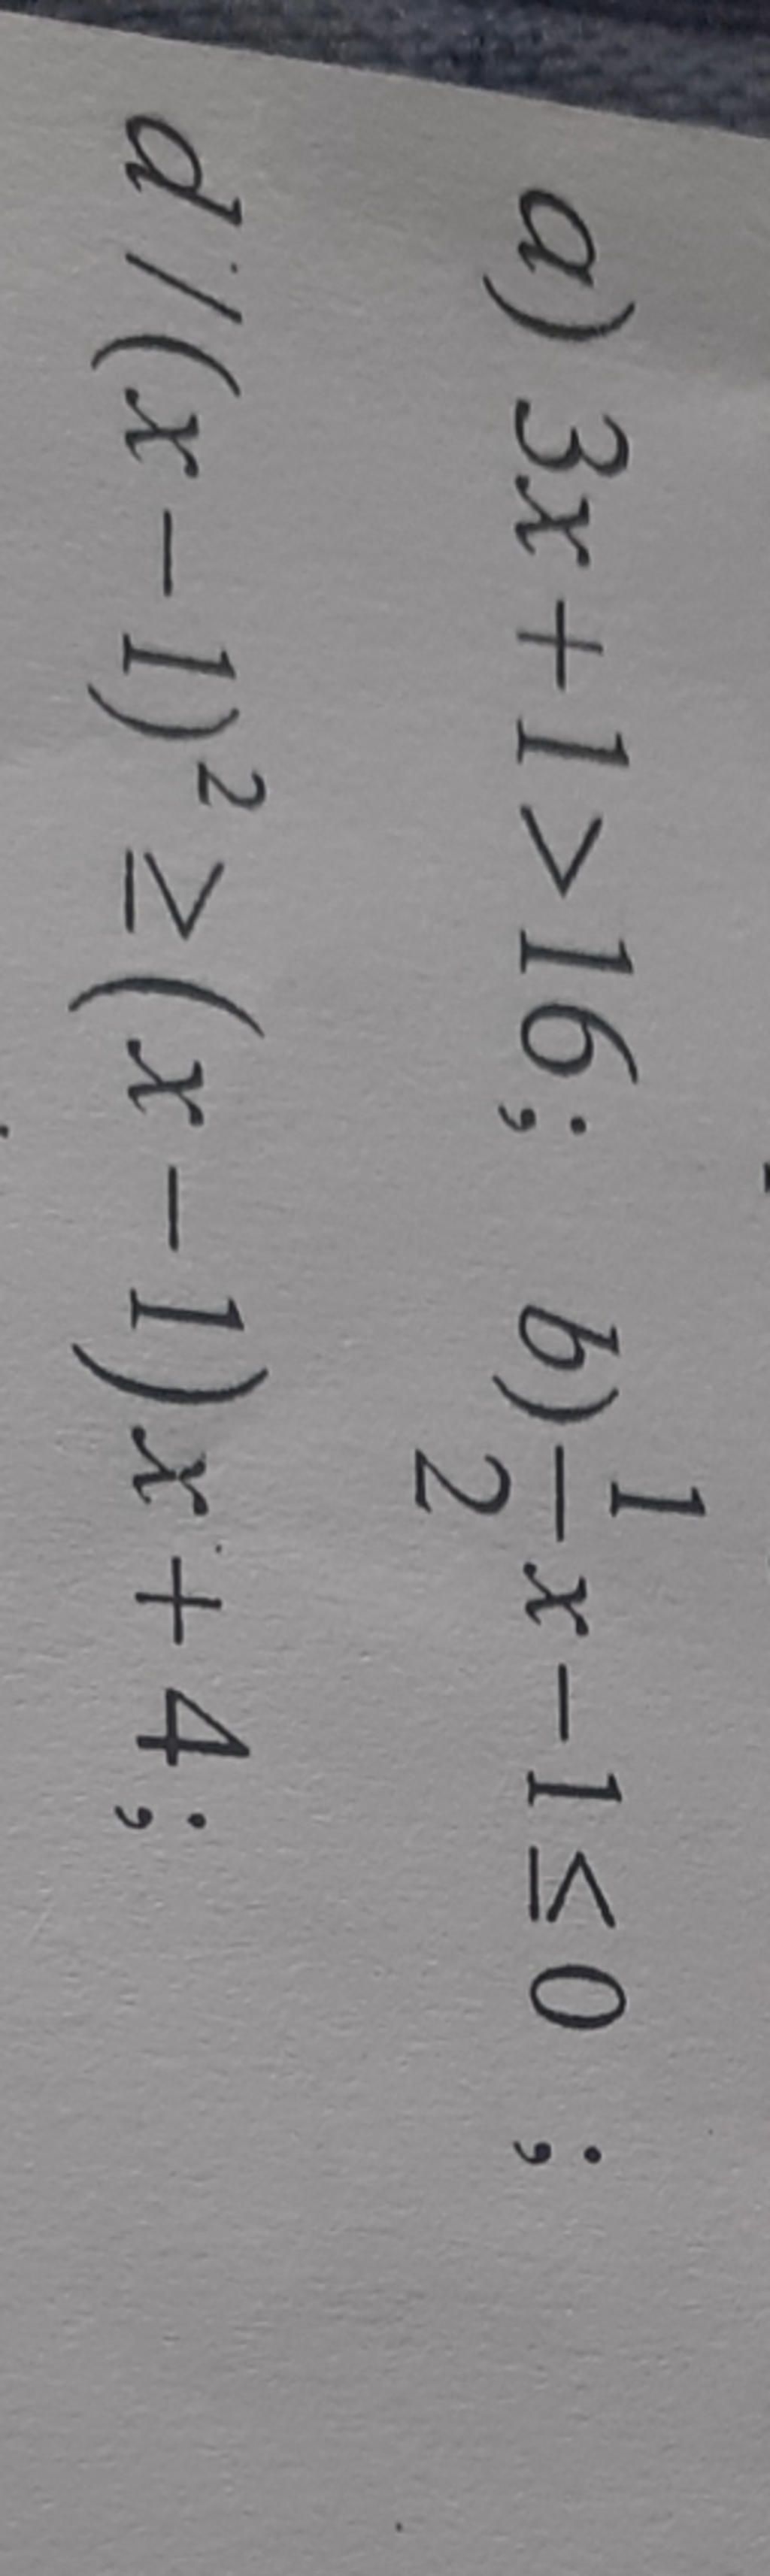 a) 3x + 1 > 16; b) \frac{1}{2}x - 1 ≤ 0 ;
d/(x - 1)² ≥ (x - 1)x + 4;